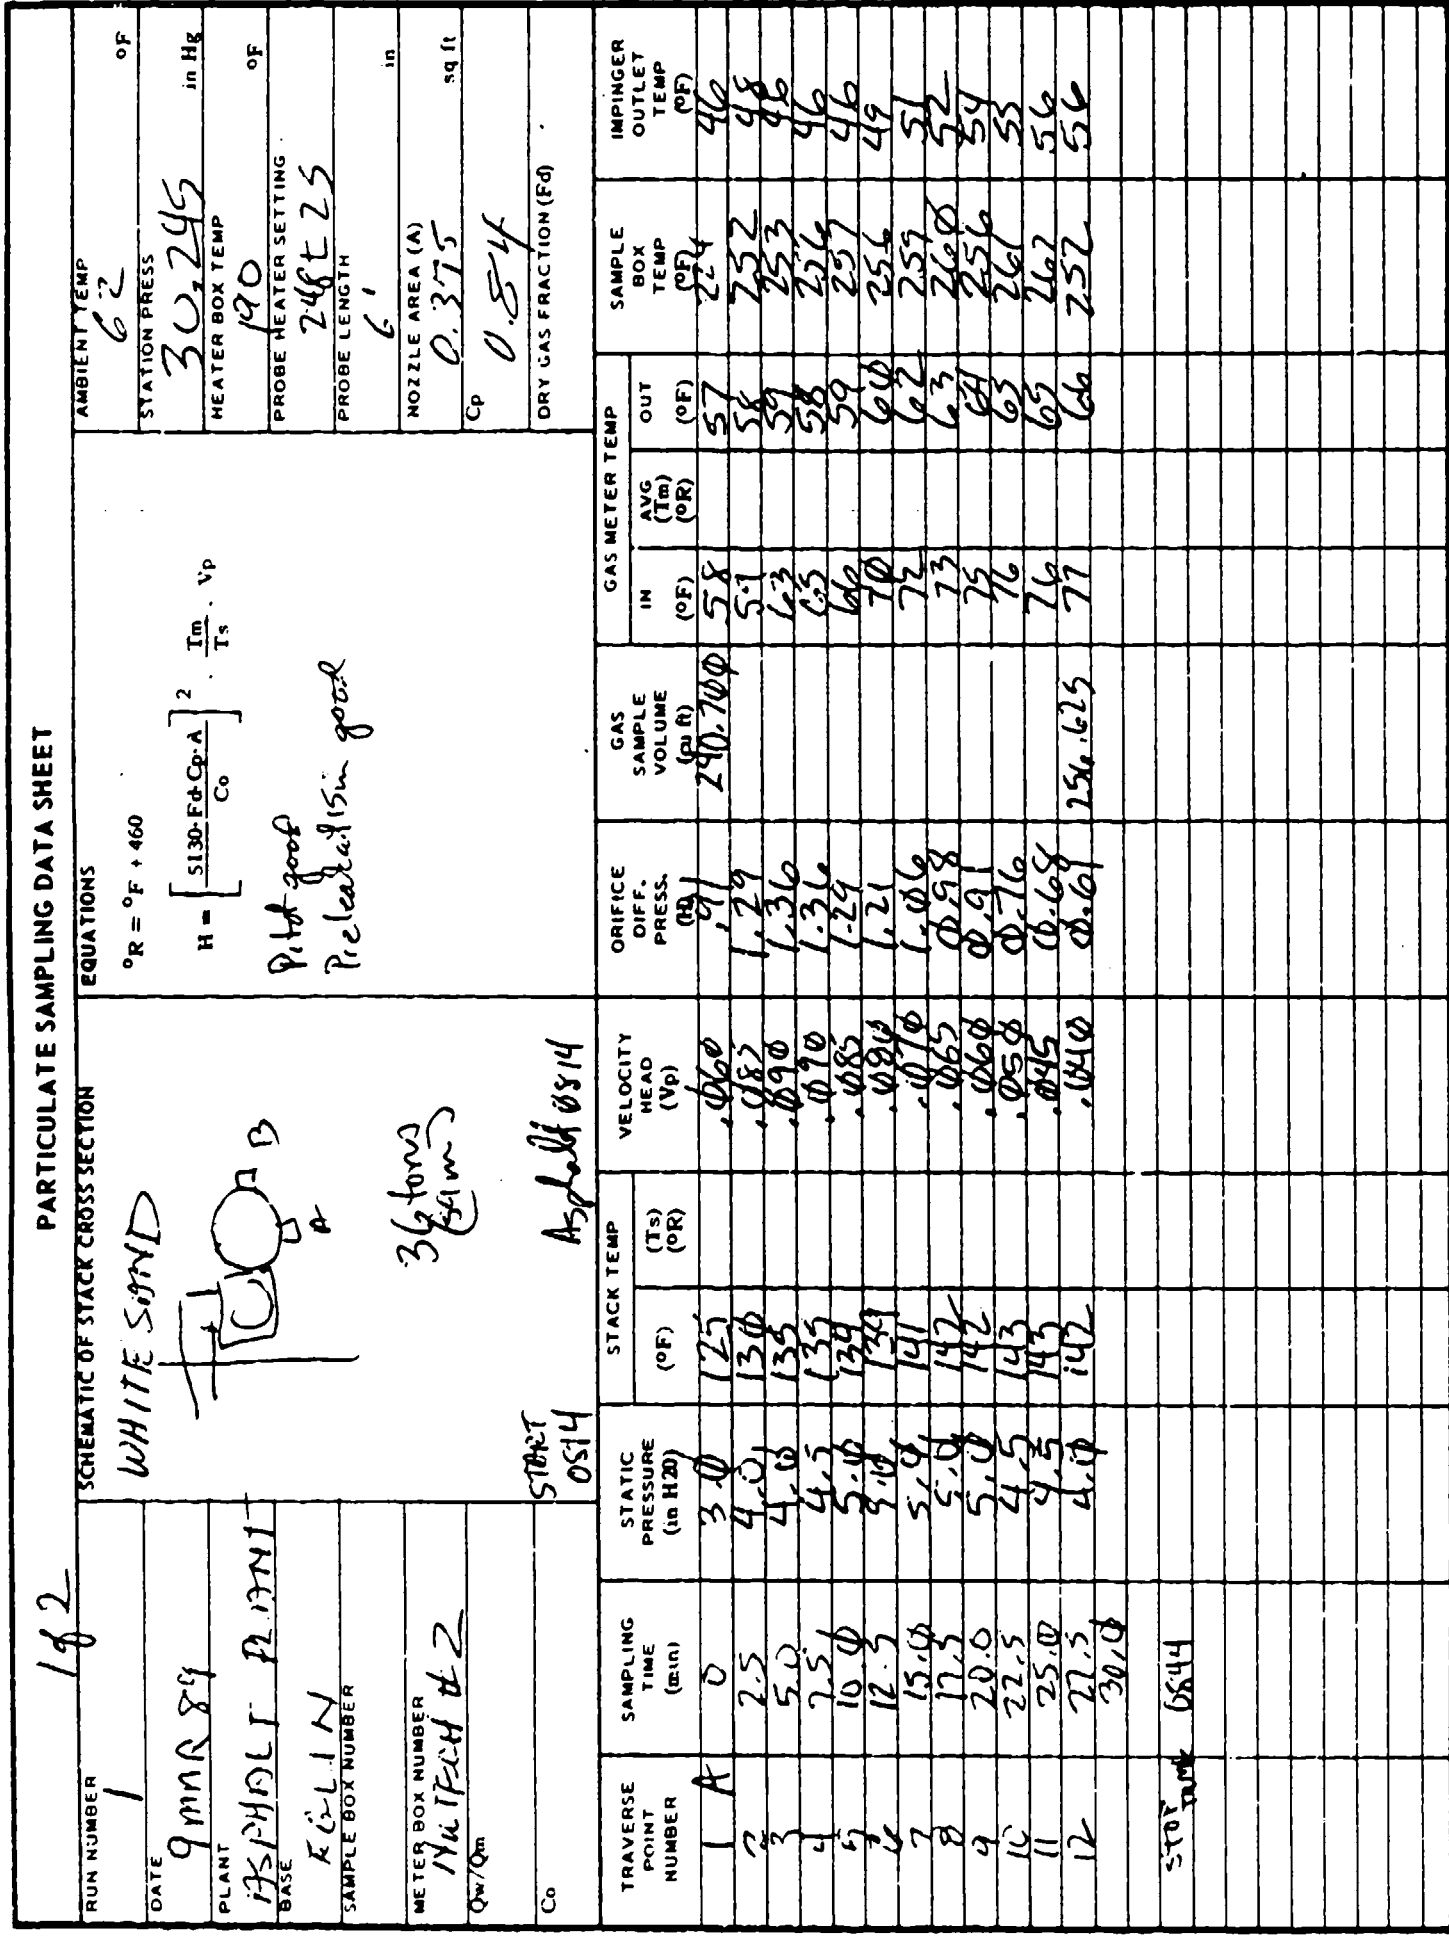 PARTICULATE SAMPLING DATA SHEET
1 of 2
RUN NUMBER
1
DATE
9 MAR 89
PLANT
ASPHALT PLANT
BASE
EGLIN
SAMPLE BOX NUMBER
METER BOX NUMBER
NUTECH #2
Qw/Qm
Co
SCHEMATIC OF STACK CROSS SECTION
WHITE SAND
B
A
36 tons
START
0814
Asphalt 0814
EQUATIONS
°R = °F + 460
H = [ 5130·Fd·Cp·A / Co ] 2 · Tm / Ts · Vp
Pitot good
good
AMBIENT TEMP
62 °F
STATION PRESS
30.245 in Hg
HEATER BOX TEMP
190 °F
PROBE HEATER SETTING
PROBE LENGTH
6' in
NOZZLE AREA (A)
0.375 sq ft
Cp
0.84
DRY GAS FRACTION (Fd)
TRAVERSE POINT NUMBER
SAMPLING TIME (min)
STATIC PRESSURE (in H20)
STACK TEMP
(°F)
(Ts) (°R)
VELOCITY HEAD (Vp)
ORIFICE DIFF. PRESS. (H)
GAS SAMPLE VOLUME (cu ft)
GAS METER TEMP
IN (°F)
AVG (Tm) (°R)
OUT (°F)
SAMPLE BOX TEMP (°F)
IMPINGER OUTLET TEMP (°F)
1 A 0 3.0 125 .060 .91 240.700 58 57 224 46
2 2.5 4.0 130 .085 1.29 59 58 232 48
3 5.0 4.0 135 .090 1.36 63 59 253 46
4 7.5 4.5 135 .090 1.36 65 58 256 46
5 10.0 5.0 139 .085 1.29 66 59 257 46
6 12.5 139 .080 1.21 70 60 256 49
7 15.0 5.0 141 .070 1.06 72 62 259 51
8 17.5 5.0 142 .065 0.98 73 63 260 52
9 20.0 5.0 142 .060 0.91 75 64 256 54
10 22.5 4.5 143 .050 0.76 76 65 261 55
11 25.0 4.5 143 .045 0.68 76 65 262 56
12 27.5 4.0 142 .040 0.61 256.625 77 66 252 56
30.0
STOP TIME 0844